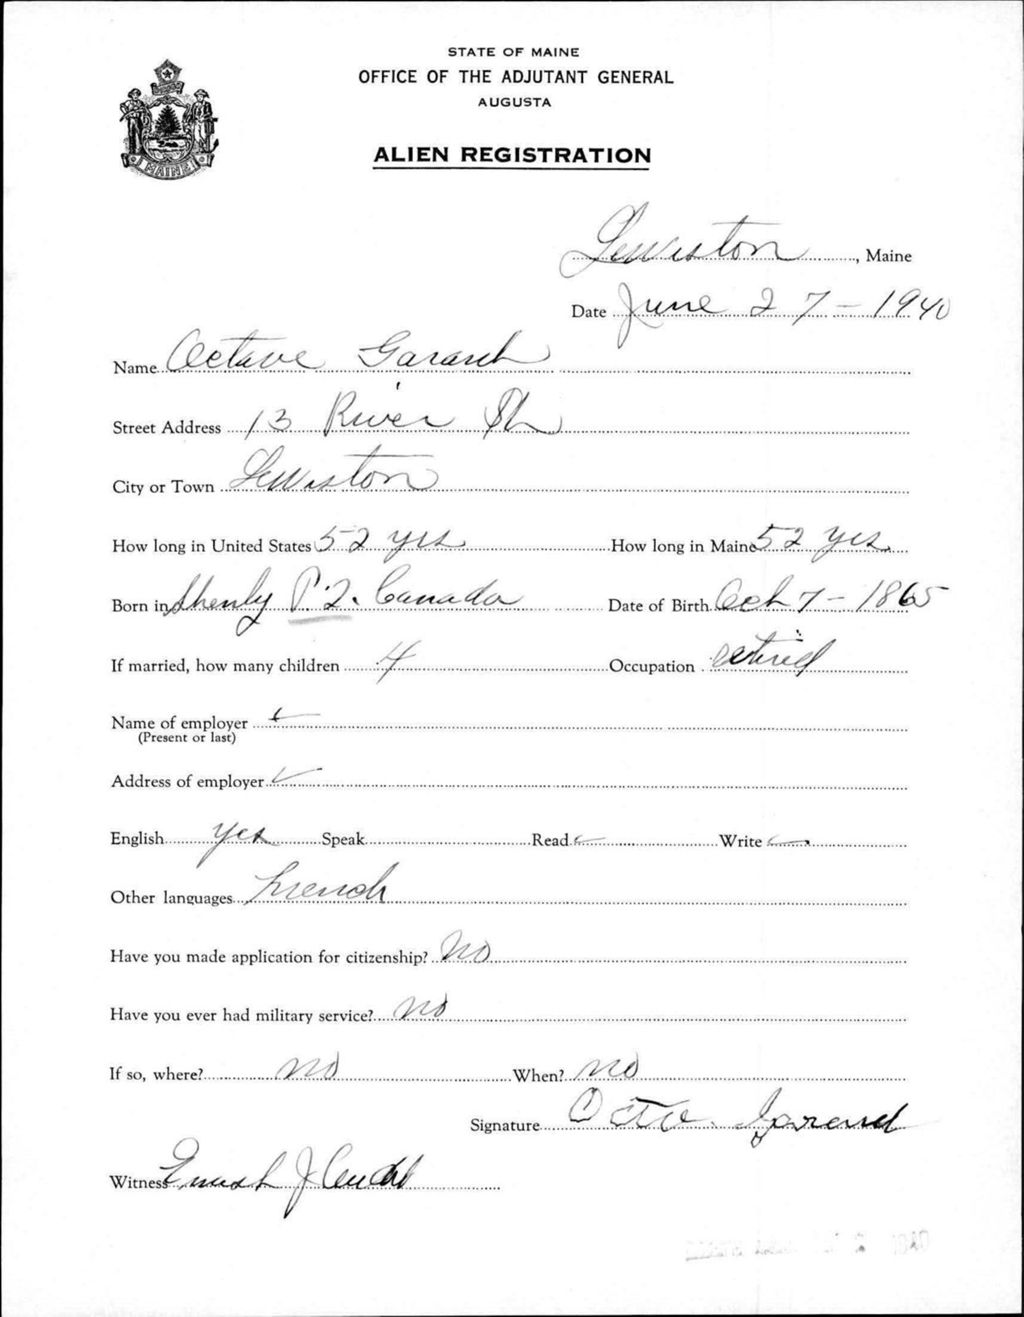 STATE OF MAINE
OFFICE OF THE ADJUTANT GENERAL
AUGUSTA
ALIEN REGISTRATION
MAINE
Lewiston, Maine
Date June 27-1940
Name Octave
Street Address 13 River St
City or Town Lewiston
How long in United States 52 yrs How long in Maine 52 yrs
Born in P.Q. Canada Date of Birth Oct 7-1865
If married, how many children 4 Occupation retired
Name of employer
(Present or last)
Address of employer
English yes Speak Read Write
Other languages french
Have you made application for citizenship? No
Have you ever had military service? No
If so, where? no When? No
Signature
Witness